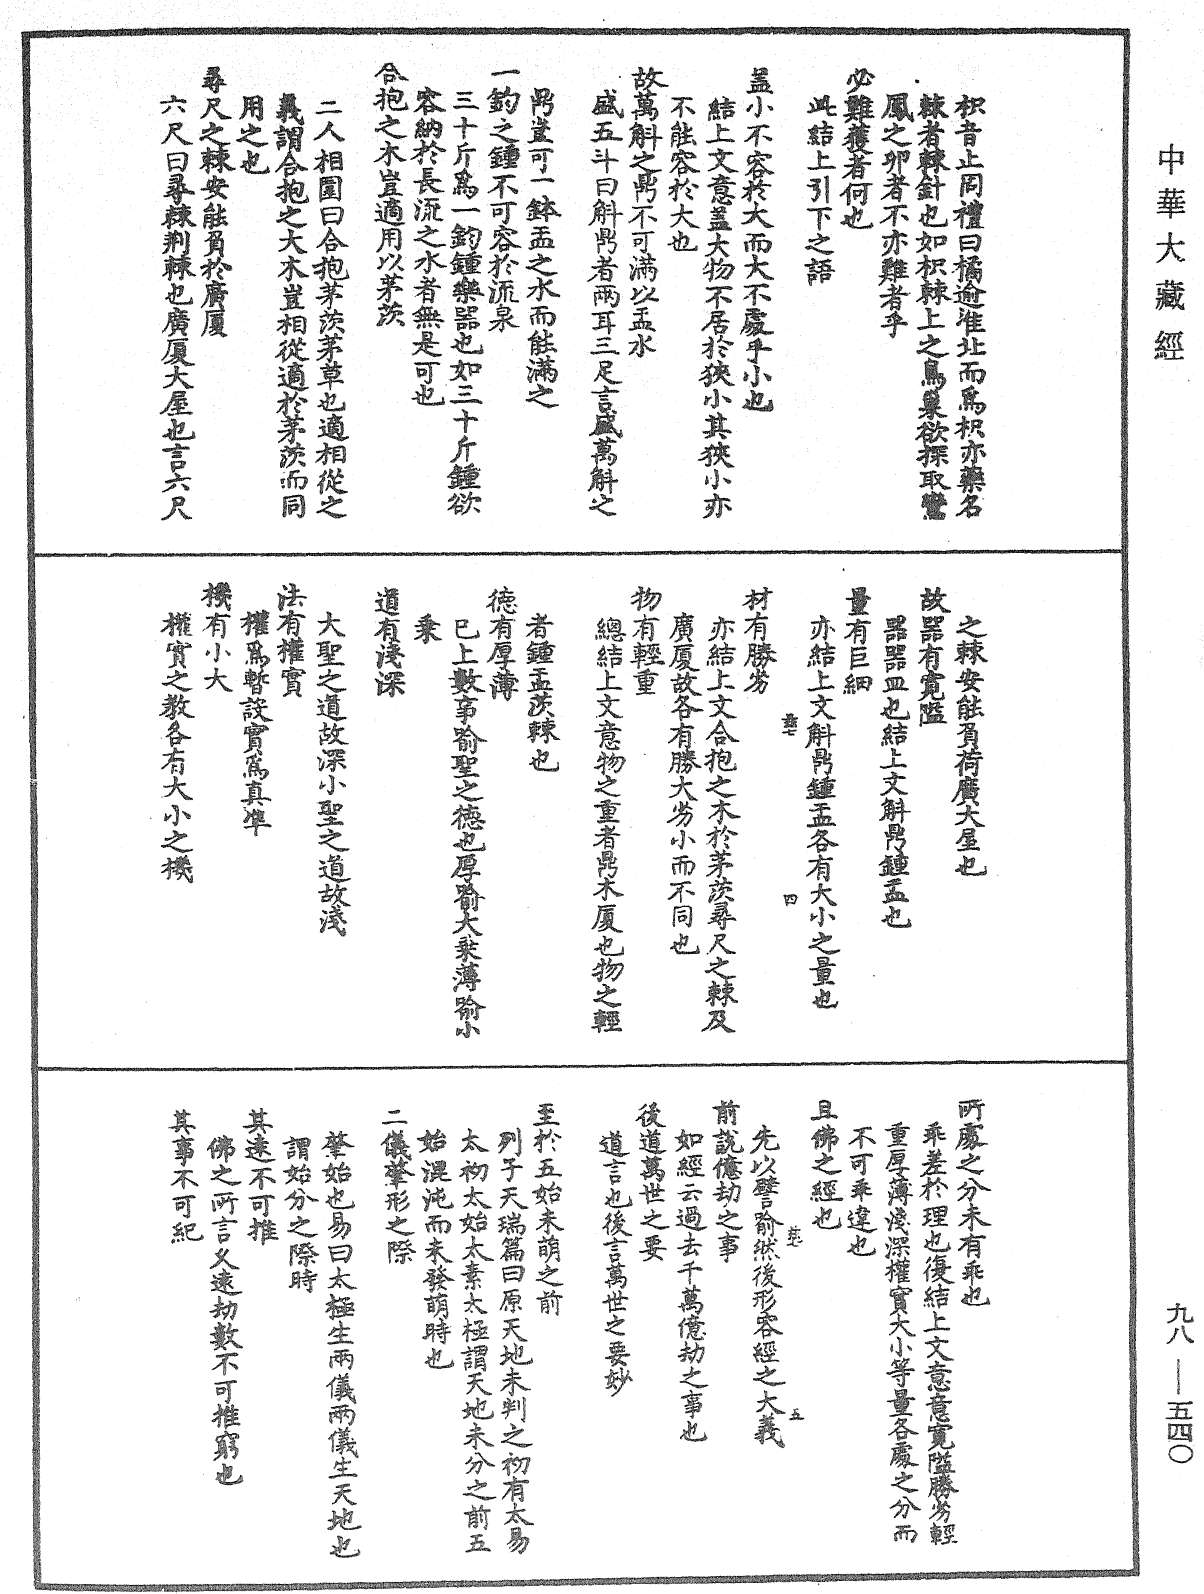 中華大藏經
枳音止同禮曰橘逾淮北而爲枳亦藥名
棘者棘針也如枳棘上之鳥巢欲探取鸞
鳳之卵者不亦難者乎
必難獲者何也
此結上引下之語
蓋小不容於大而大不處乎小也
結上文意蓋大物不居於狹小其狹小亦
不能容於大也
故萬斛之鼎不可滿以盂水
盛五斗曰斛鼎者兩耳三足言盛萬斛之
鼎豈可一鉢盂之水而能滿之
一鈞之鍾不可容於流泉
三十斤爲一鈞鍾樂器也如三十斤鍾欲
容納於長流之水者無是可也
合抱之木豈適用以茅茨
二人相圍曰合抱茅茨茅草也適相從之
義謂合抱之大木豈相從適於茅茨而同
用之也
尋尺之棘安能負於廣厦
六尺曰尋棘荆棘也廣厦大屋也言六尺
之棘安能負荷廣大屋也
故器有寬隘
器器皿也結上文斛鼎鍾盂也
量有巨細
亦結上文斛鼎鍾盂各有大小之量也
四
材有勝劣
亦結上文合抱之木於茅茨尋尺之棘及
廣厦故各有勝大劣小而不同也
物有輕重
總結上文意物之重者鼎木厦也物之輕
者鍾盂茨棘也
德有厚薄
已上數事喻聖之德也厚喻大乘薄喻小
乘
道有淺深
大聖之道故深小聖之道故淺
法有權實
權爲暫設實爲真準
機有小大
權實之教各有大小之機
所處之分未有乖也
乖差於理也復結上文意意寬隘勝劣輕
重厚薄淺深權實大小等量各處之分而
不可乖違也
且佛之經也
先以譬喻然後形容經之大義
五
前說億劫之事
如經云過去千萬億劫之事也
後道萬世之要
道言也後言萬世之要妙
至於五始未萌之前
列子天瑞篇曰原天地未判之初有太易
太初太始太素太極謂天地未分之前五
始混沌而未發萌時也
二儀肇形之際
肇始也易曰太極生兩儀兩儀生天地也
謂始分之際時
其遠不可推
佛之所言义遠劫數不可推窮也
其事不可紀
九八—五四〇